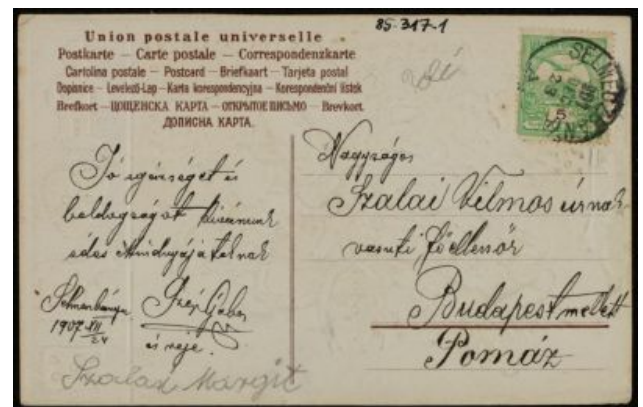 85-317-1
Union postale universelle
Postkarte — Carte postale — Correspondenzkarte
Cartolina postale — Postcard — Briefkaart — Tarjeta postal
Dopisnice — Levelező-Lap — Karta korespondencyjna — Korespondenčni listek
Brefkort — ЦОЩЕНСКА КАРТА — ОТКРЫТОЕ ПИСЬМО — Brevkort
ДОПИСНА КАРТА.
Jó egészséget és
boldogságot kívánunk
édes mindnyájatoknak
Selmecbánya
1907 XII
24
Szép Gábor
és neje.
Szalax Margit
Nagyságos
Szalai Vilmos úrnak
vasuti főellenőr
Budapest mellett
Pomáz